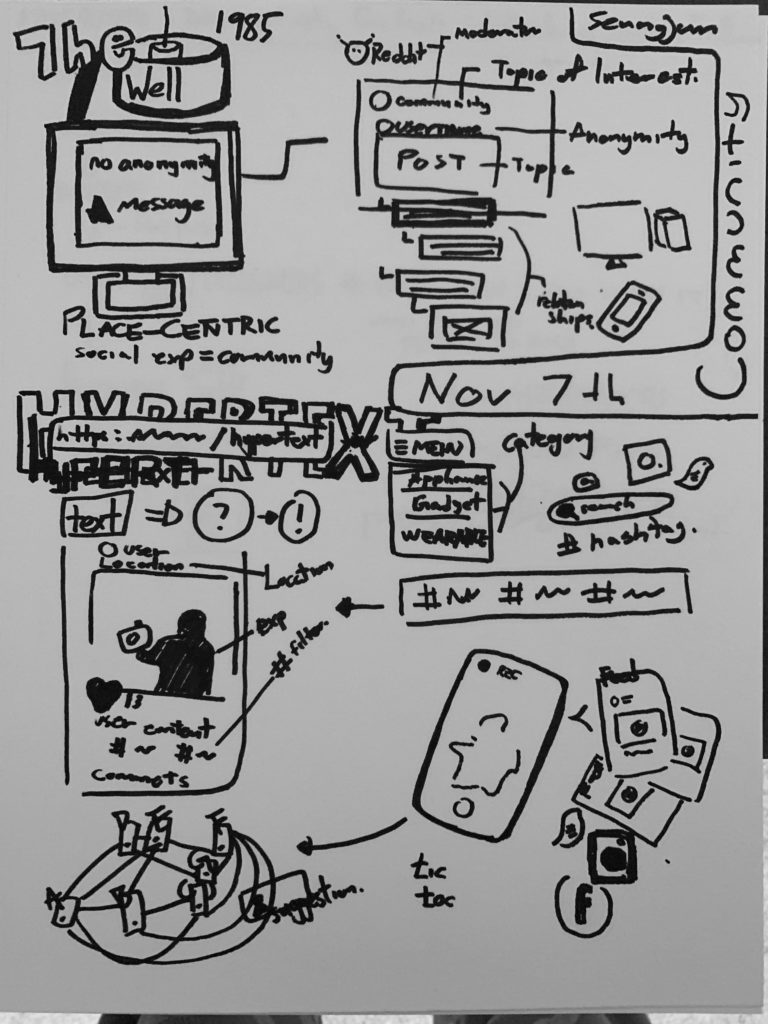 The
1985
Well
no anonymity
message
PLACE-CENTRIC
social exp = community
Reddit
Moderator
Topic of Interest.
community
username
Anonymity
POST
Topic
Community
Nov 7th
HYPERTEX
https: /hypertext
HYPERTEXT
text => ? → !
≡ MENU
category
Appliance
Gadget
WEARABLE
@
search
# hashtag.
user
Location
Location
exp
# filter.
13
user content
# ~ # ~
Comments
# ~ # ~ # ~
REC
Feed
tic
toc
F
suggestion.